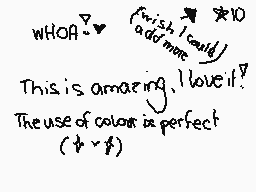 WHOA! ♥
(wish I could
add more) ★10
This is amazing, I love it!
The use of color is perfect